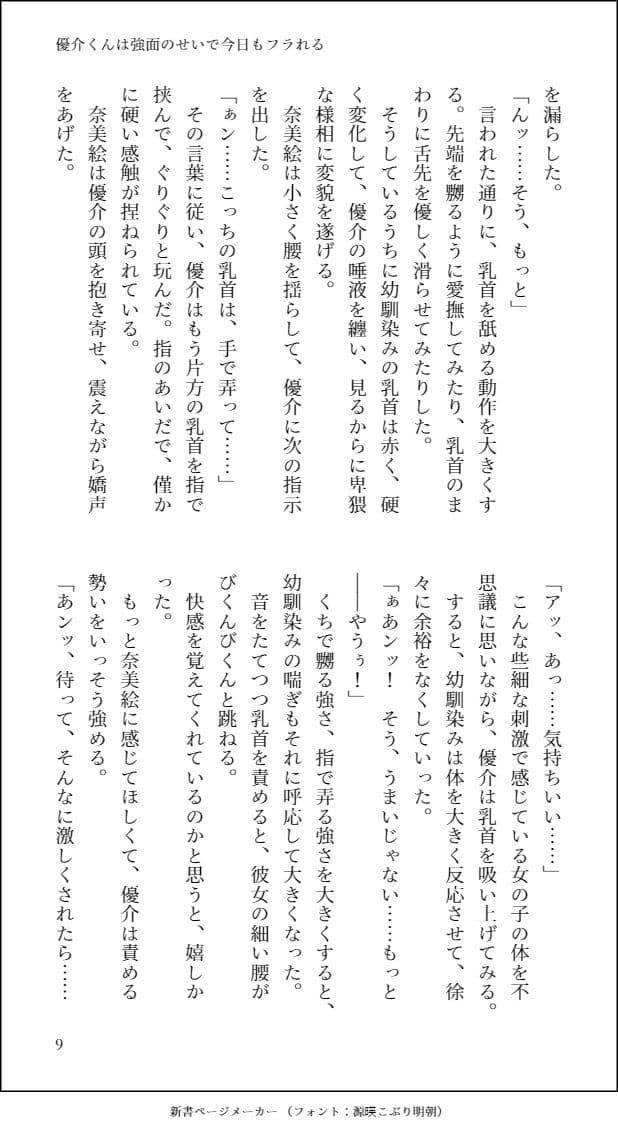 優介くんは強面のせいで今日もフラれる
を漏らした。
「んッ……そう、もっと」
言われた通りに、乳首を舐める動作を大きくす
る。先端を嬲るように愛撫してみたり、乳首のま
わりに舌先を優しく滑らせてみたりした。
そうしているうちに幼馴染みの乳首は赤く、硬
く変化して、優介の唾液を纏い、見るからに卑猥
な様相に変貌を遂げる。
奈美絵は小さく腰を揺らして、優介に次の指示
を出した。
「ぁン……こっちの乳首は、手で弄って……」
その言葉に従い、優介はもう片方の乳首を指で
挟んで、ぐりぐりと玩んだ。指のあいだで、僅か
に硬い感触が捏ねられている。
奈美絵は優介の頭を抱き寄せ、震えながら嬌声
をあげた。
「アッ、あっ……気持ちいい……」
こんな些細な刺激で感じている女の子の体を不
思議に思いながら、優介は乳首を吸い上げてみる。
すると、幼馴染みは体を大きく反応させて、徐
々に余裕をなくしていった。
「ぁあンッ！　そう、うまいじゃない……もっと
――やうぅ！」
くちで嬲る強さ、指で弄る強さを大きくすると、
幼馴染みの喘ぎもそれに呼応して大きくなった。
音をたてつつ乳首を責めると、彼女の細い腰が
びくんびくんと跳ねる。
快感を覚えてくれているのかと思うと、嬉しか
った。
もっと奈美絵に感じてほしくて、優介は責める
勢いをいっそう強める。
「あンッ、待って、そんなに激しくされたら……
9
新書ページメーカー（フォント：源暎こぶり明朝）